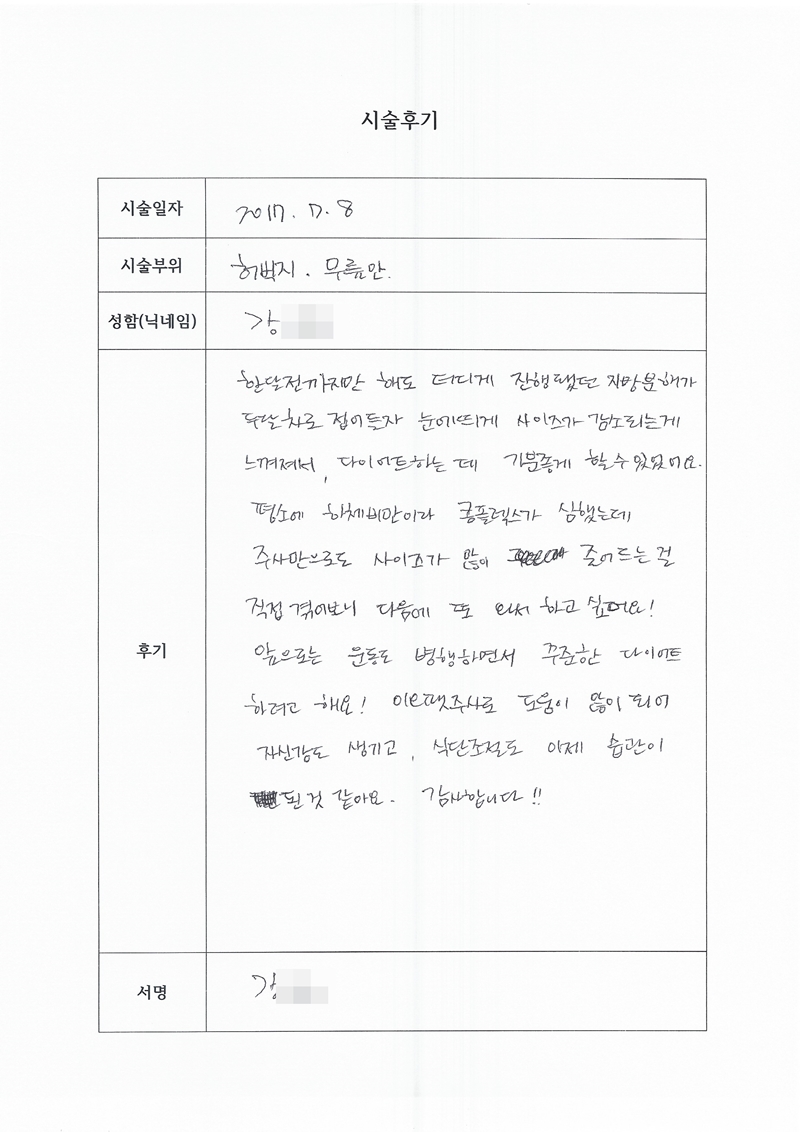 시술후기
시술일자 2017. 7. 8
시술부위 허벅지. 무릎안.
성함(닉네임) 강
후기
한달전까지만 해도 더디게 진행됐던 지방분해가
두달차로 접어들자 눈에띄게 사이즈가 감소되는게
느껴져서, 다이어트하는 데 기분좋게 할 수 있었어요.
평소에 하체비만이라 콩플렉스가 심했는데
주사만으로도 사이즈가 많이 줄어드는 걸
직접 겪어보니 다음에 또 와서 하고 싶어요!
앞으로는 운동도 병행하면서 꾸준한 다이어트
하려고 해요! 이오팻주사로 도움이 많이 되어
자신감도 생기고, 식단조절도 이제 습관이
된 것 같아요. 감사합니다!!
서명 강